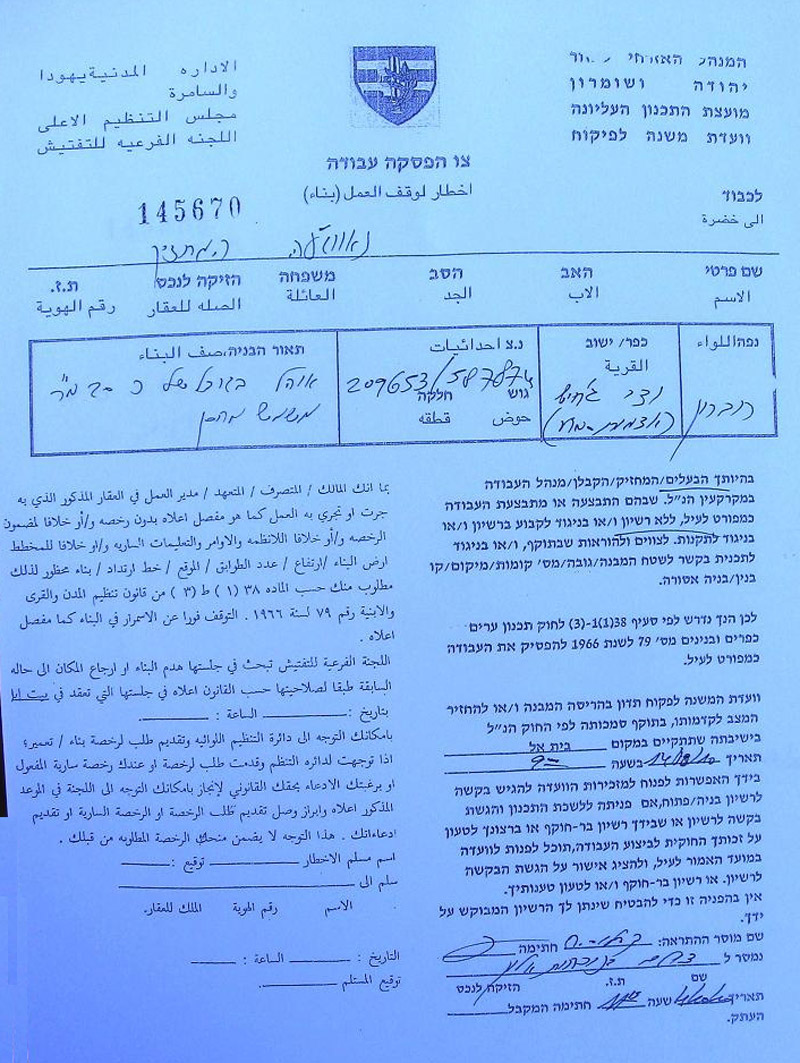 המנהל האזרחי
יהודה ושומרון
מועצת התכנון העליונה
וועדת משנה לפיקוח
الاداره المدنية يهودا
والسامرة
مجلس التنظيم الاعلى
اللجنه الفرعيه للتفتيش
צו הפסקה עבודה
اخطار لوقف العمل (بناء)
145670
לכבוד
الى حضرة
שם פרטי האב הסב משפחה הזיקה לנכס ת.ז.
الاسم الاب الجد العائلة الصله للعقار رقم الهوية
נפה اللواء כפר/ישוב נ.צ احداثيات תאור הבניה, صف البناء
القرية
209653/587874
גוש חלקה
חوض قطقه
חברון
בהיותך הבעלים/המחזיק/הקבלן/מנהל העבודה
במקרקעין הנ"ל. שבהם התבצעה או מתבצעת העבודה
כמפורט לעיל, ללא רשיון ו/או בניגוד לקבוע ברשיון ו/או
בניגוד לתקנות. לצווים ולהוראות שבתוקף, ו/או בניגוד
לתכנית בקשר לשטח המבנה/גובה/מס' קומות/מיקום/קו
בנין/בניה אסורה.
לכן הנך נדרש לפי סעיף 38(1)-(3) לחוק תכנון ערים
כפרים ובנינים מס' 79 לשנת 1966 להפסיק את העבודה
כמפורט לעיל.
וועדת המשנה לפקוח תדון בהריסה המבנה ו/או להחזיר
המצב לקדמותו, בתוקף סמכותה לפי החוק הנ"ל
בישיבתה שתתקיים במקום בית אל
תאריך בשעה
בידך האפשרות לפנוח למזכירות הוועדה להגיש בקשה
לרשיון בניה/פתוח, אם פניתה ללשכת התכנון והגשת
בקשה לרשיון או שבידך רשיון בר-חוקף או ברצונך לטעון
על זכותך החוקית לביצוע העבודה, תוכל לפנות לוועדה
במועד האמור לעיל, ולהציג אישור על הגשת הבקשה
לרשיון. או רשיון בר-חוקף ו/או לטעון טענותיך.
אין בהפניה זו כדי להבטיח שינתן לך הרשיון המבוקש על
ידך.
שם מוסר ההתראה: חתימה
נמסר ל
שם ת.ז. הזיקה לנכס
תאריך שעה חתימה המקבל
העתק.
بما انك المالك / المتصرف / المتعهد / مدير العمل في العقار المذكور الذي به
جرت او تجري به العمل كما هو مفصل اعلاه بدون رخصه و/أو خلافا لمضمون
الرخصه و/أو خلافا للانظمه والاوامر والتعليمات الساريه و/او خلافا للمخطط
ارض البناء / ارتفاع / عدد الطوابق / الموقع / خط ارتداد / بناء محظور لذلك
مطلوب منك حسب الماده ٣٨ (١) ط (٣) من قانون تنظيم المدن والقرى
والابنية رقم ٧٩ لسنة ١٩٦٦ . التوقف فورا عن الاسمرار في البناء كما مفصل
اعلاه .
اللجنة الفرعية للتفتيش تبحث في جلستها هدم البناء او ارجاع المكان الى حاله
السابقة طبقا لصلاحيتها حسب القانون اعلاه في جلستها التي تعقد في بيت ايل
بتاريخ : الساعة :
بامكانك التوجه الى دائرة التنظيم اللوائيه وتقديم طلب لرخصة بناء / تعمير؛
اذا توجهت لدائره التنظيم وقدمت طلب لرخصة او عندك رخصة سارية المفعول
او برغبتك الادعاء بحقك القانوني لإنجاز بامكانك التوجه الى اللجنة في الموعد
المذكور اعلاه وابراز وصل تقديم طلب الرخصة او الرخصة السارية او تقديم
ادعاءاتك . هذا التوجه لا يضمن منحك الرخصة المطلوبه من قبلك .
اسم مسلم الاخطار توقيع :
سلم الى
الاسم رقم الهوية الملك للعقار.
التاريخ : الساعة :
توقيع المستلم